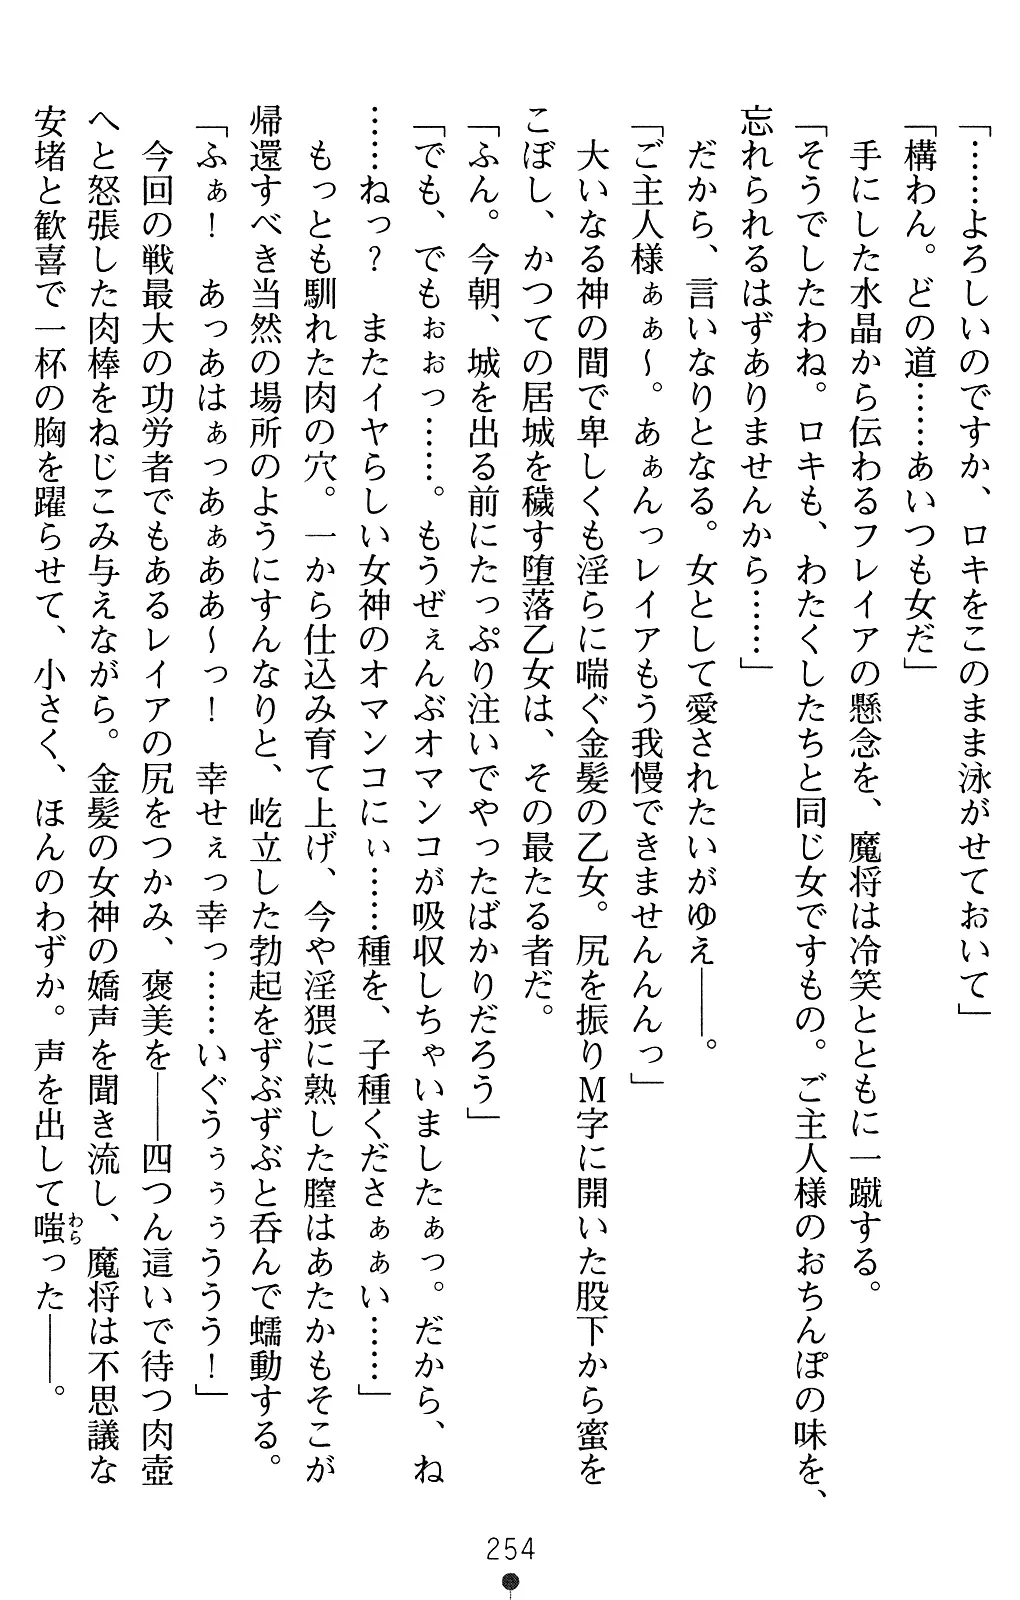 「……よろしいのですか、ロキをこのまま泳がせておいて」
「構わん。どの道……あいつも女だ」
　手にした水晶から伝わるフレイアの懸念を、魔将は冷笑とともに一蹴する。
「そうでしたわね。ロキも、わたくしたちと同じ女ですもの。ご主人様のおちんぽの味を、
忘れられるはずありませんから……」
　だから、言いなりとなる。女として愛されたいがゆえ――。
「ご主人様ぁぁ～。あぁんっレイアもう我慢できませんんんっ」
　大いなる神の間で卑しくも淫らに喘ぐ金髪の乙女。尻を振りＭ字に開いた股下から蜜を
こぼし、かつての居城を穢す堕落乙女は、その最たる者だ。
「ふん。今朝、城を出る前にたっぷり注いでやったばかりだろう」
「でも、でもぉぉっ……。もうぜぇんぶオマンコが吸収しちゃいましたぁっ。だから、ね
……ねっ？　またイヤらしい女神のオマンコにぃ……種を、子種くださぁぁい……」
　もっとも馴れた肉の穴。一から仕込み育て上げ、今や淫猥に熟した膣はあたかもそこが
帰還すべき当然の場所のようにすんなりと、屹立した勃起をずぶずぶと呑んで蠕動する。
「ふぁ！　あっあはぁっあぁああ～っ！　幸せぇっ幸っ……いぐうぅぅぅううう！」
　今回の戦最大の功労者でもあるレイアの尻をつかみ、褒美を――四つん這いで待つ肉壺
へと怒張した肉棒をねじこみ与えながら。金髪の女神の嬌声を聞き流し、魔将は不思議な
安堵と歓喜で一杯の胸を躍らせて、小さく、ほんのわずか。声を出して嗤った――。
わら
254